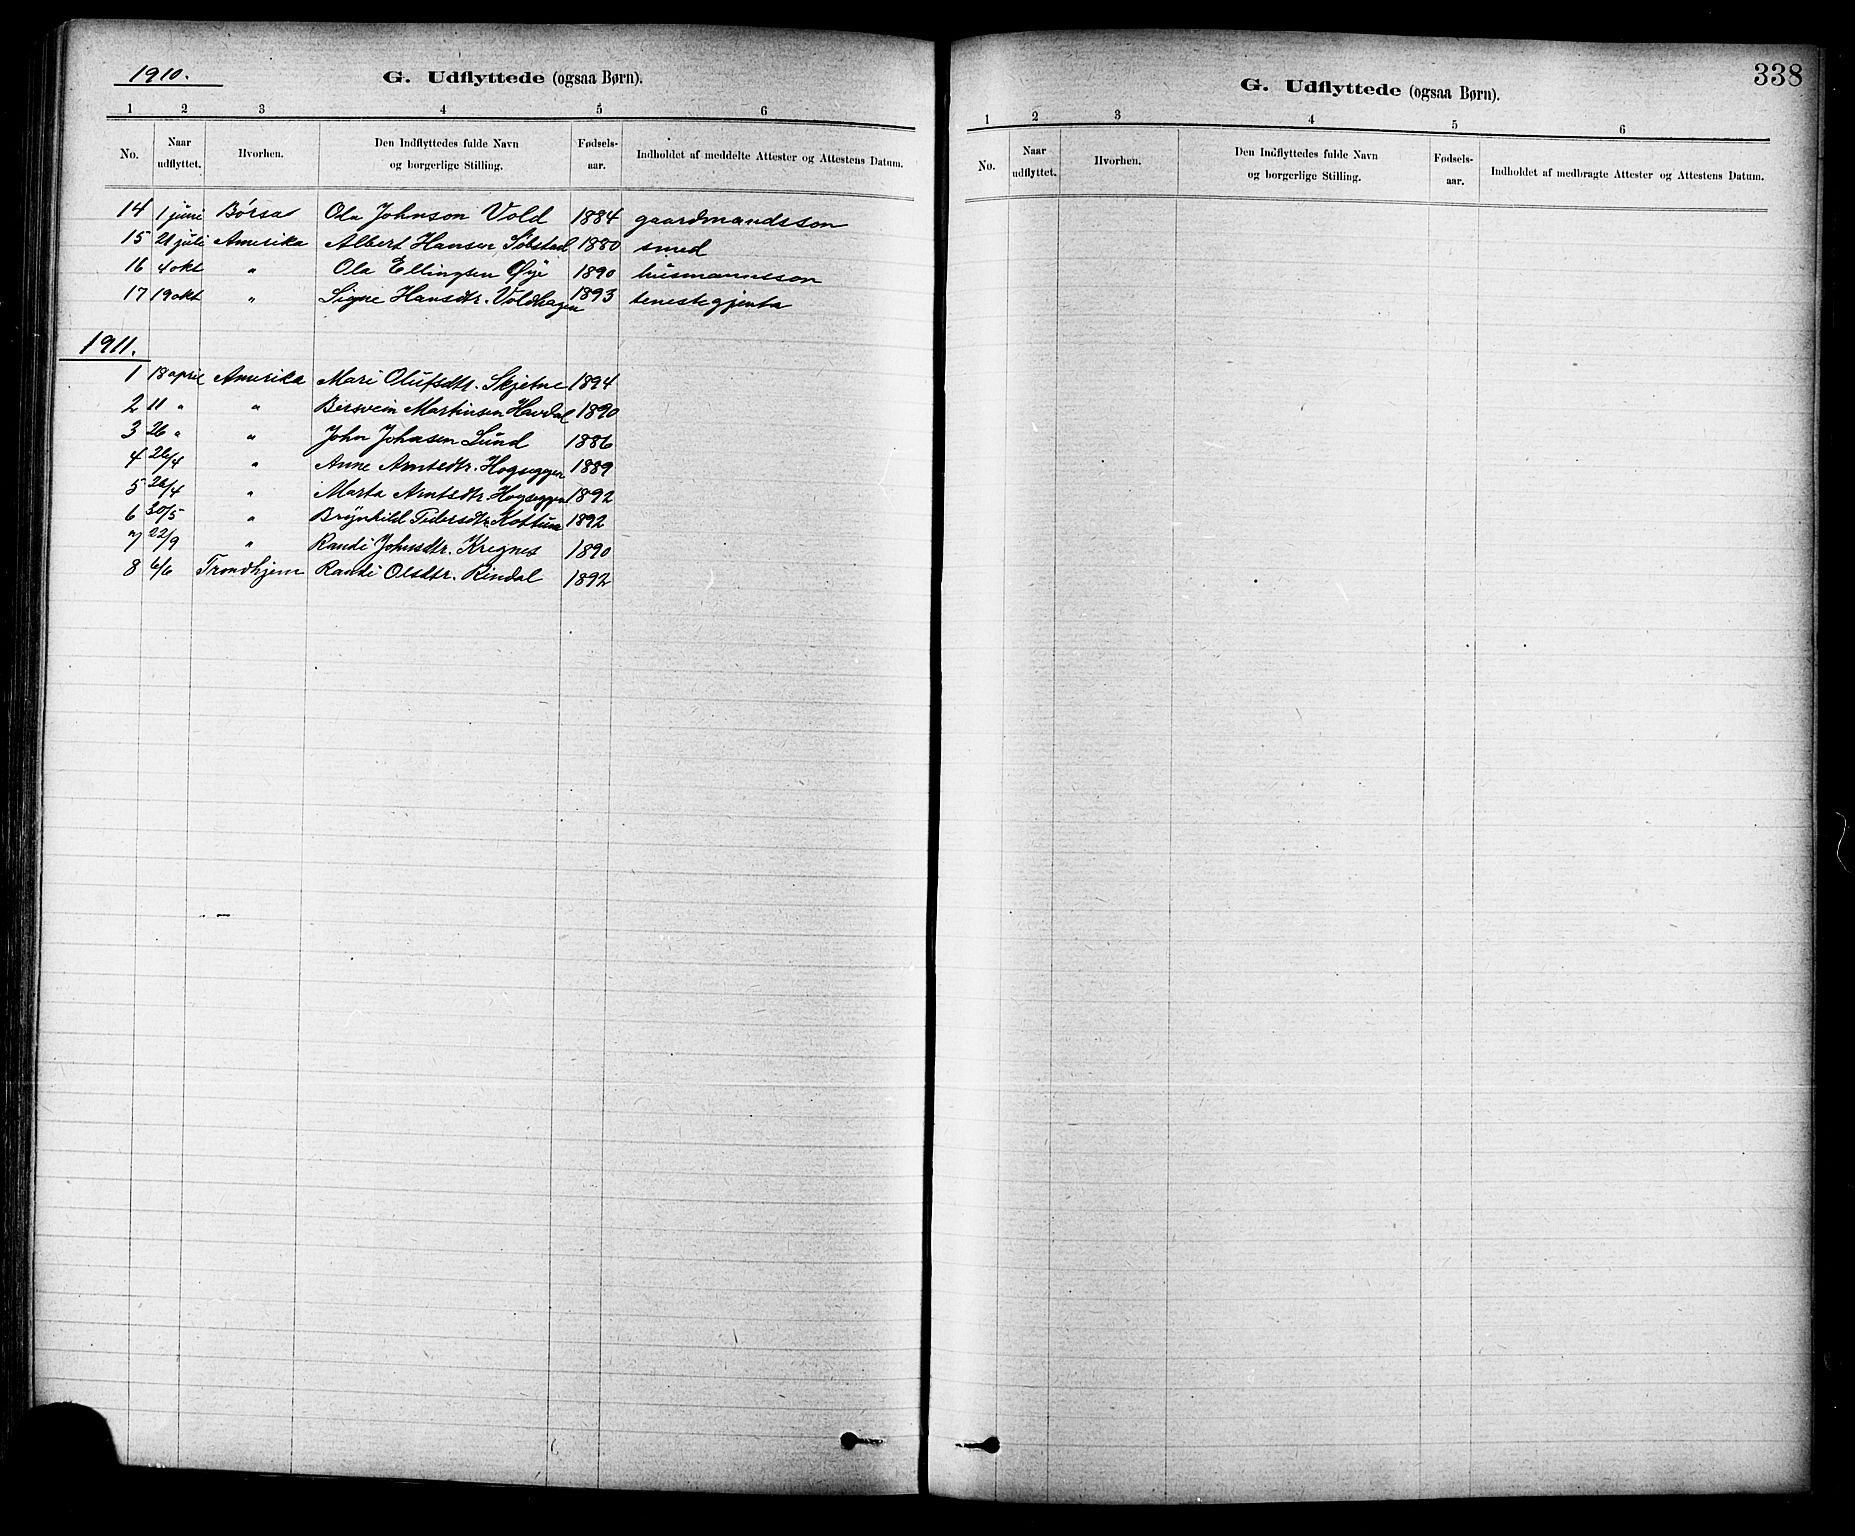 1910.
G. Udflyttede (ogsaa Børn).
1 2 3 4 5 6
No. Naar udflyttet. Hvorhen. Den Indflyttedes fulde Navn og borgerlige Stilling. Fødsels-aar. Indholdet af meddelte Attester og Attestens Datum.
14 1 juni Børsa Ola Johnson Vold 1884 gaardmandsson
15 21 juli Amerika Albert Hansen Søbstad 1880 smed
16 4 okt " Ola Ellingsen Øye 1890 husmannsson
17 19 okt " Signe Hansdtr. Voldhagen 1893 tenestegjenta
1911.
1 18 april Amerika Mari Olufsdtr. Skjetne 1894
2 11 " " Bersvein Martinsen Havdal 1890
3 26 " " John Johnsen Lund 1886
4 26/4 " Anne Arntsdtr. Hogseggen 1889
5 26/4 " Marta Arntsdtr. Hogseggen 1892
6 30/5 " Brynhild Pedersdtr. Kottum 1892
7 22/9 " Randi Johnsdtr. Kregnes 1890
8 6/6 Trondhjem Randi Olsdtr. Rindal 1892
338
G. Udflyttede (ogsaa Børn).
1 2 3 4 5 6
No. Naar udflyttet. Hvorhen. Den Indflyttedes fulde Navn og borgerlige Stilling. Fødsels-aar. Indholdet af medbragte Attester og Attestens Datum.